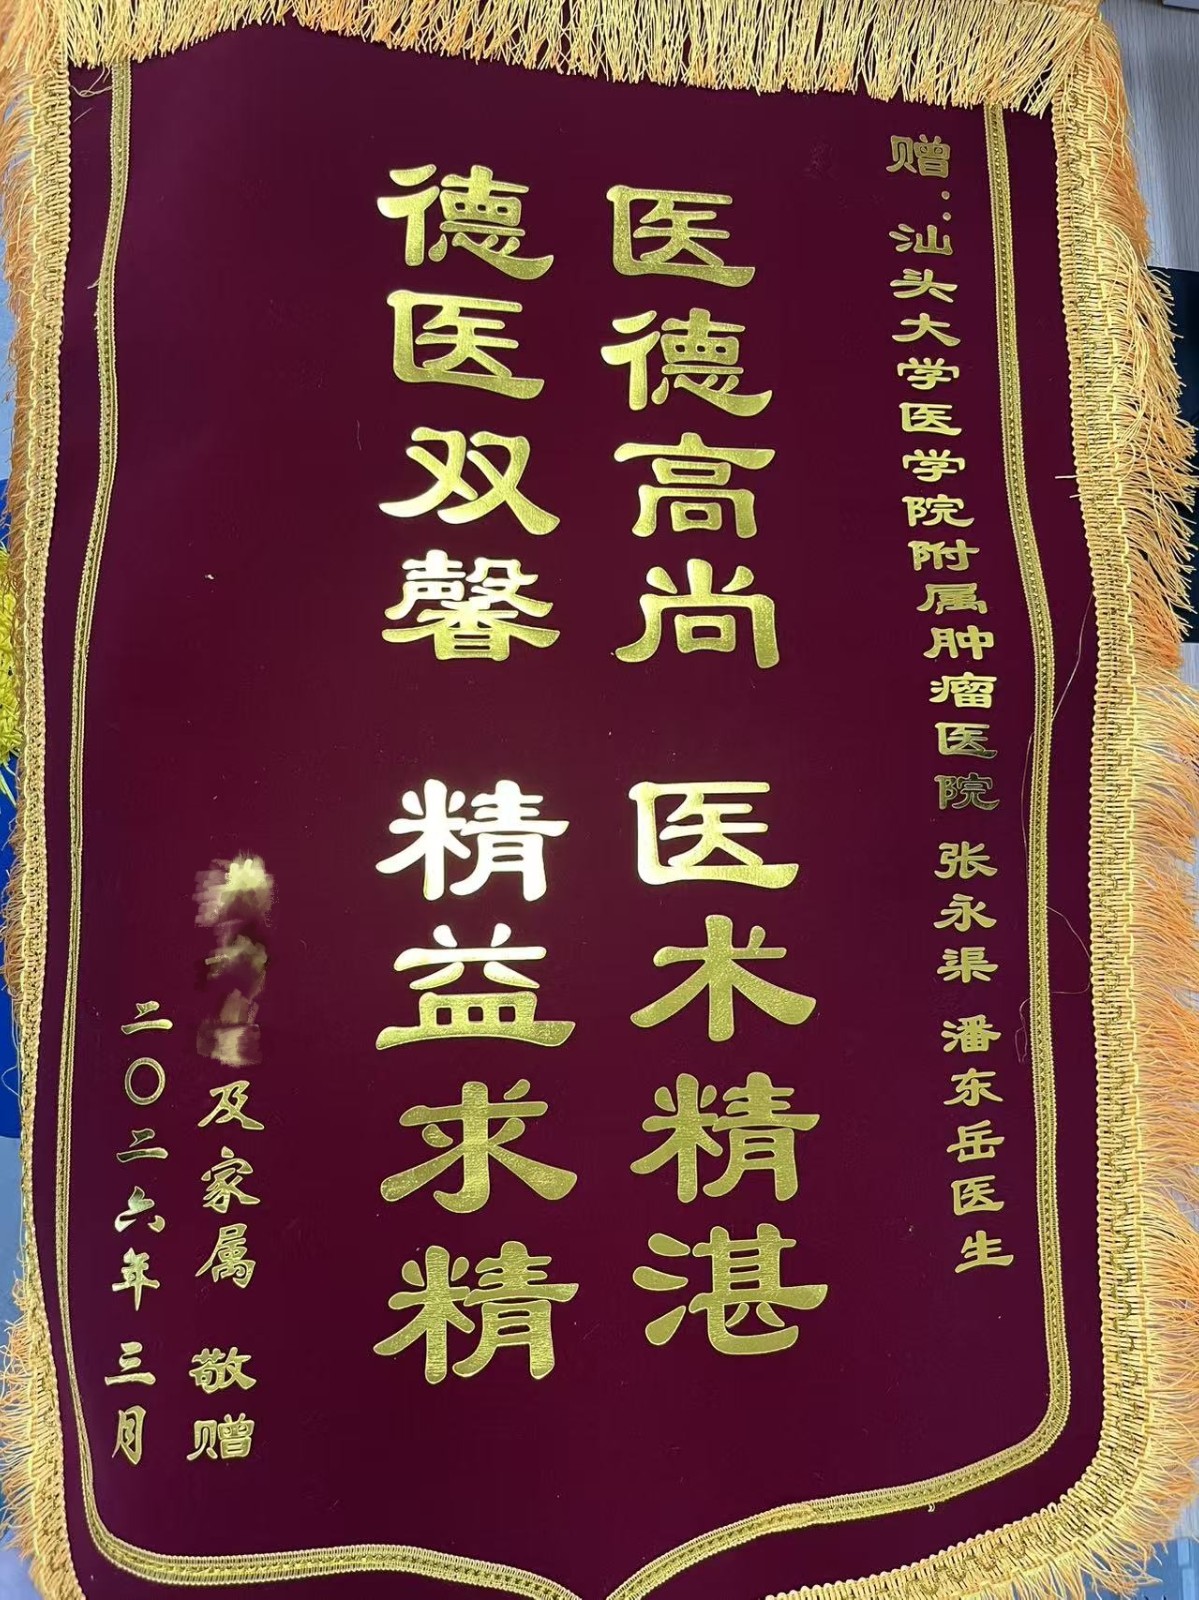 赠：汕头大学医学院附属肿瘤医院 张永渠 潘东岳医生
医德高尚 医术精湛
德医双馨 精益求精
及家属 敬赠
二〇二六年三月